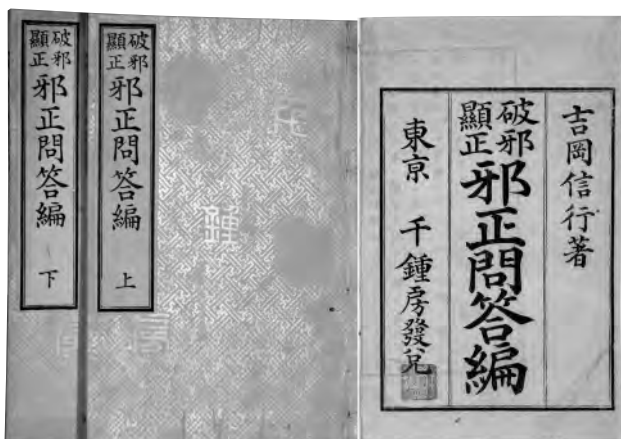 吉岡信行著
破邪
顯正
邪正問答編
東亰 千鍾房發兌
破邪
顯正
邪正問答編 上
破邪
顯正
邪正問答編 下